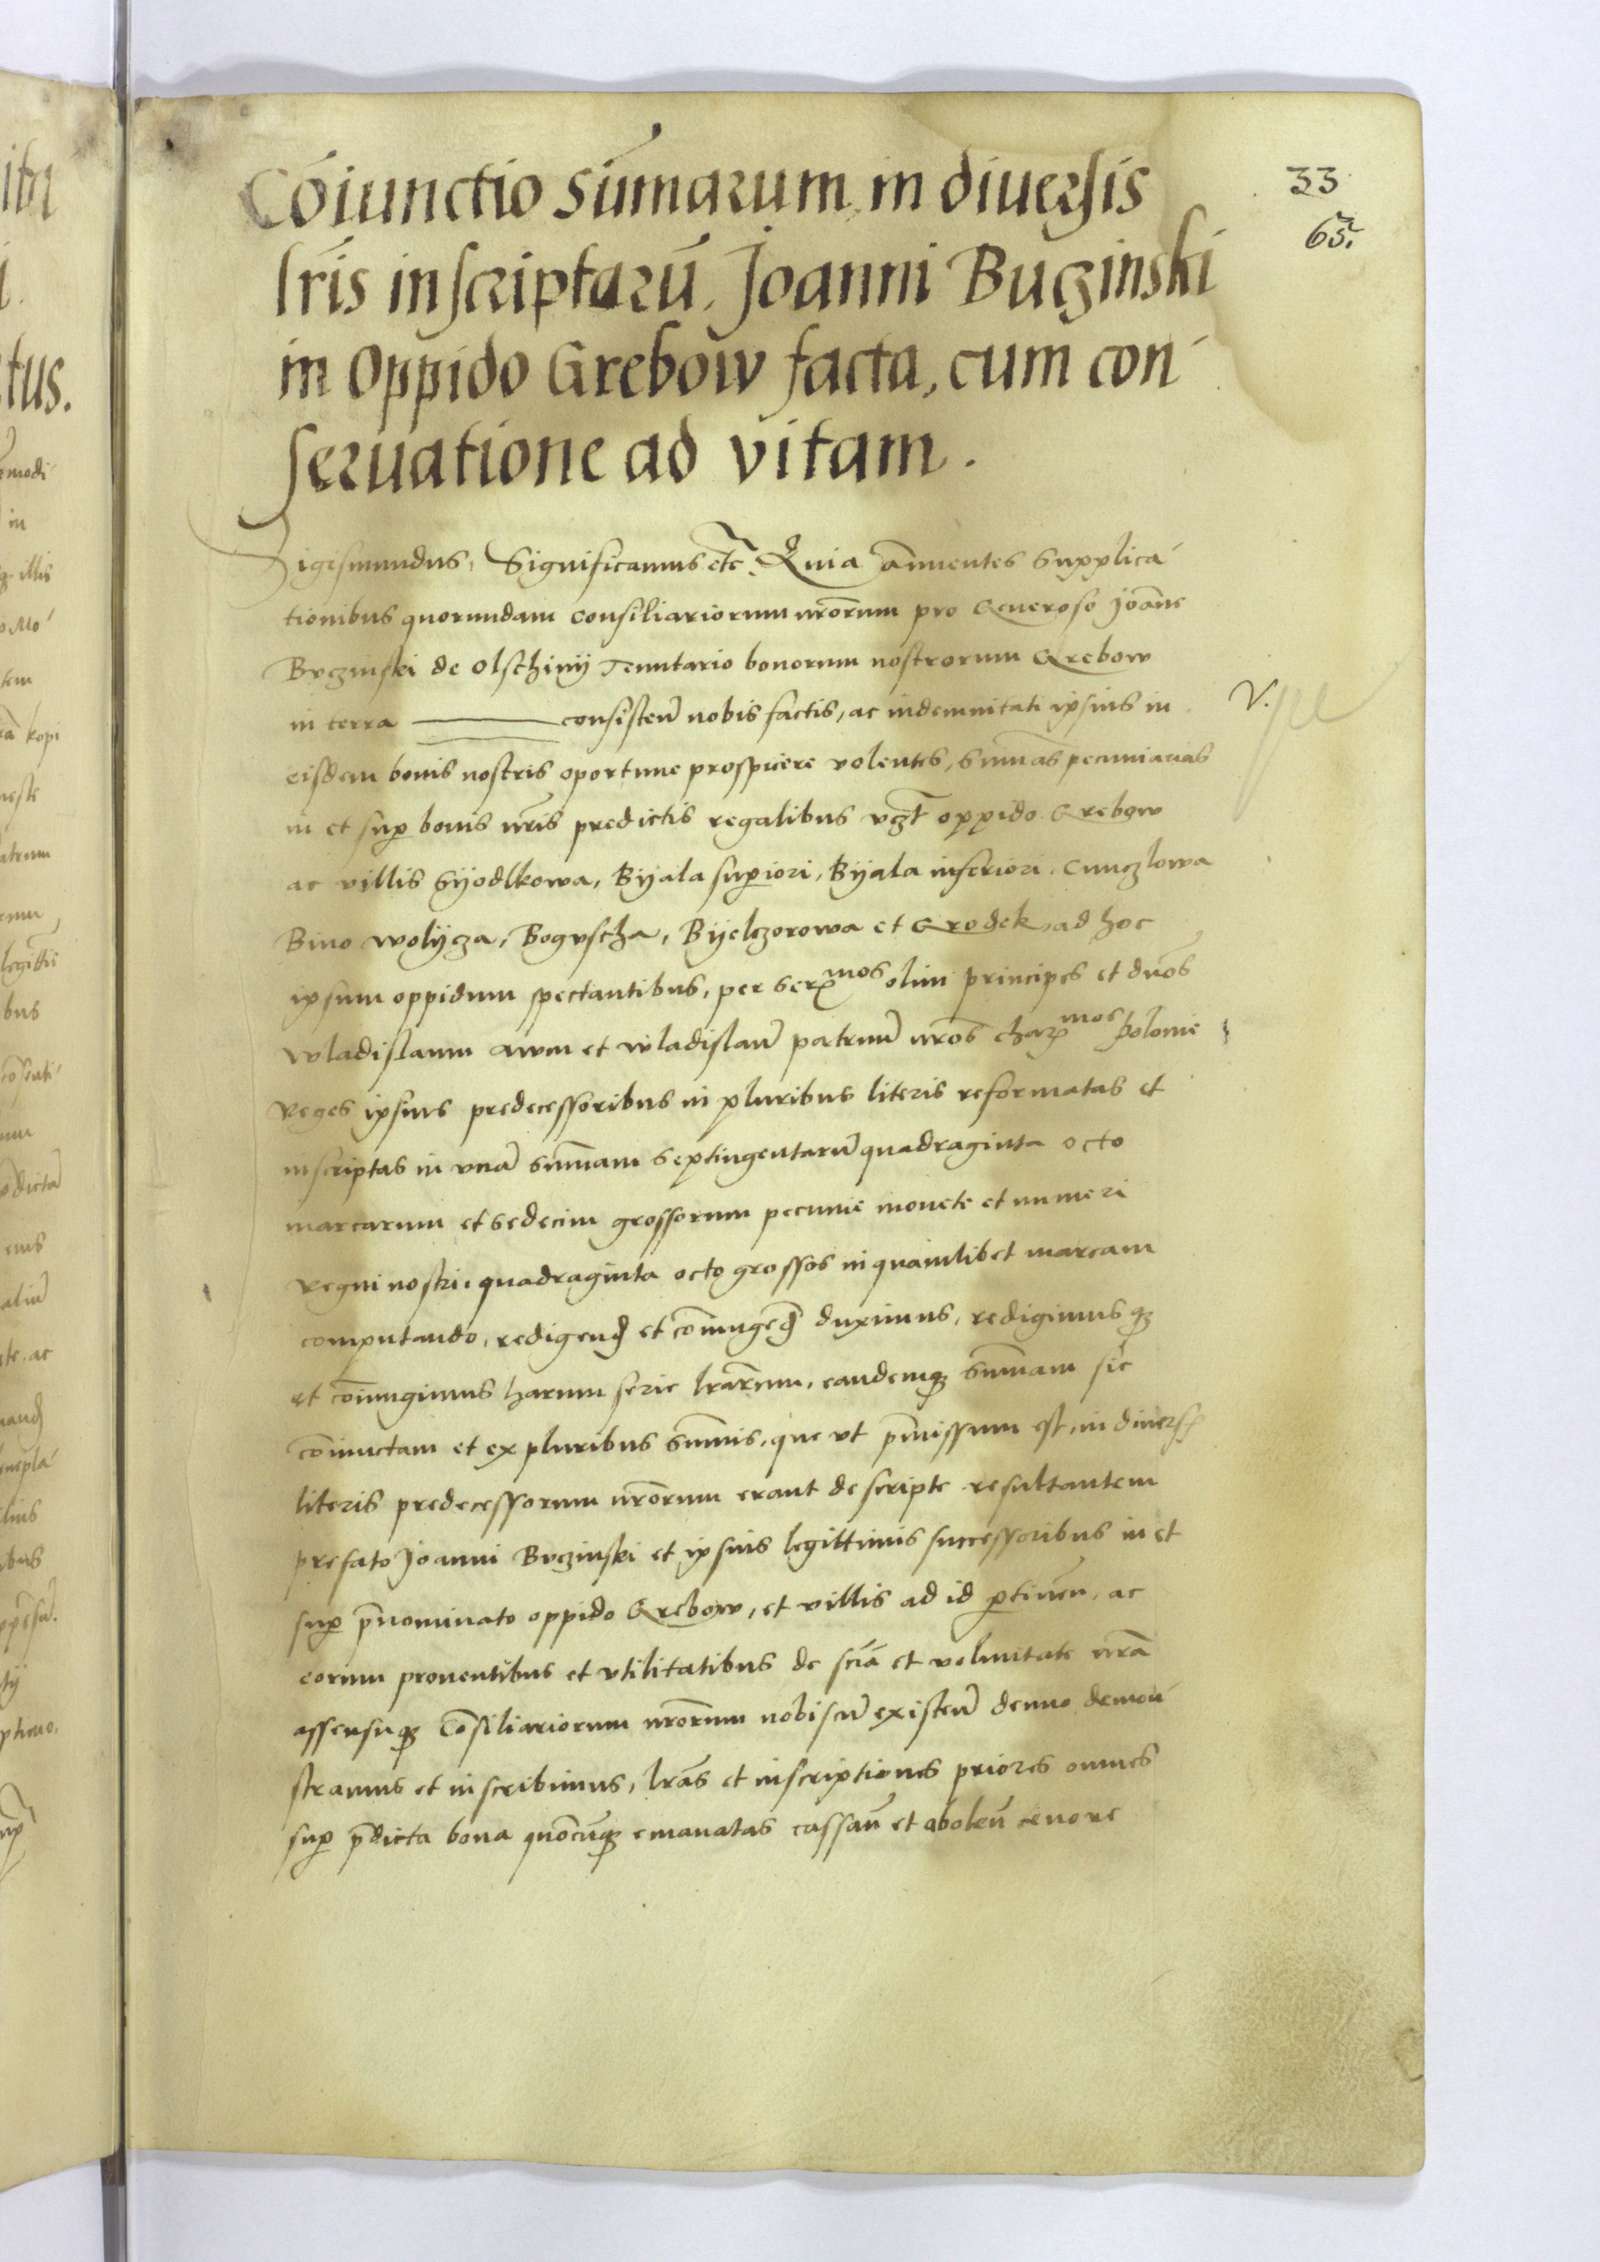 33
65.
Cōiunctio sūmarum in diuersis
lr̄is inscriptarū Joanni Buczinski
in Oppido Grebow facta, cum con
seruatione ad vitam.
Sigismundus, Significamus etc Quia annuentes supplica
tionibus quorundam consiliariorum nr̄orum pro Generoso Joāne
Bvczinski de Olschinij Tenutario bonorum nostrorum Grebow
in terra ——— consisten̄ nobis factis, ac indemnitati ipsius in
V.
eisdem bonis nostris oportune prospicere volentes, Sum̄as pecuniarias
in et sup bonis nr̄is predictis regalibus vczt oppido Grebow
ac villis Syodlkowa, Byala superiori, Byala inferiori, Cunczlowa
Bino wolijcza, Bogvscha, Byelczorowa et Grodek ad hoc
ipsum oppidum spectantibus, per Ser^mos olim principes et dn̄os
Wladislaum Avum et Wladislaū patruū nr̄os char^mos Polonie
Reges ipsius predecessoribus in pluribus literis reformatas et
inscriptas in vnā Sum̄am Septingentarū quadraginta octo
marcarum et sedecim grossorum pecunie monete et numeri
Regni nostri, quadraginta octo grossos in quamlibet marcam
computando, redigend et cōiungend duximus, redigimusq
et cōiungimus harum serie lr̄arum, eandemq Sum̄am sic
cōiunctam et ex pluribus Sum̄is, que vt pm̄issum est, in divers
literis predecessorum nr̄orum erant descripte resultantem
prefato Joanni Bvczinski et ipsius legittimis successoribus in et
sup pn̄ominato oppido Grebow, et villis ad id ptinen̄, ac
eorum proventibus et vtilitatibus de scīa et voluntate nr̄a
assensuq Cōsiliariorum nr̄orum nobiscū existen̄ denuo demon
stramus et inscribimus, lr̄as et inscriptiones priores omnes
sup pd̄icta bona quōcūq emanatas cassan̄ et abolen̄ tenore